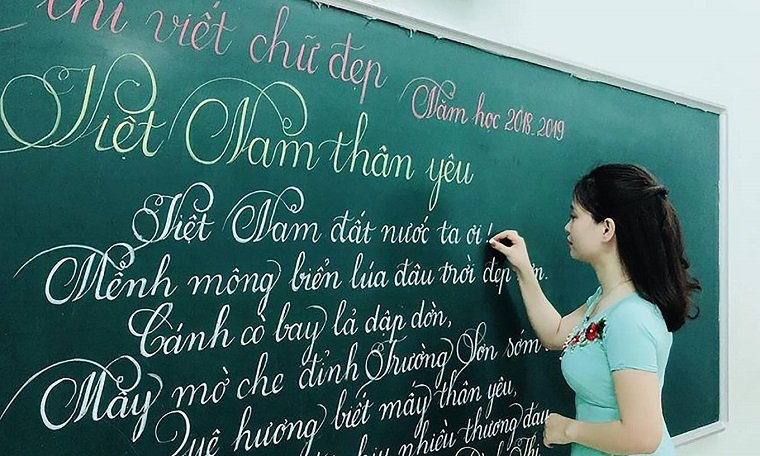 thi viết chữ đẹp
Năm học 2018-2019
Việt Nam thân yêu
Việt Nam đất nước ta ơi!
Mênh mông biển lúa đâu trời đẹp
Cánh cò bay lả dập dờn,
Mây mờ che đỉnh Trường Sơn sớm
Quê hương biết mấy thân yêu,
nhiều thương đau
Đình Thi